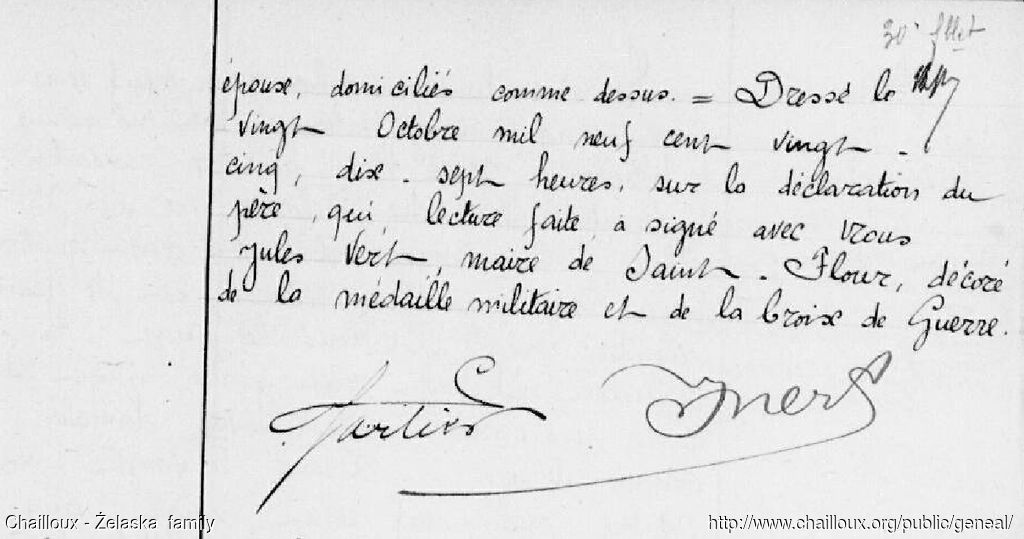 30
épouse, domiciliés comme dessus. = Dressé le
vingt Octobre mil neuf cent vingt -
cinq, dix - sept heures, sur la déclaration du
père, qui, lecture faite, a signé avec Nous
Jules Vert, maire de Saint - Flour, décoré
de la médaille militaire et de la Croix de Guerre.
JVert
Chailloux - Želaska family
http://www.chailloux.org/public/geneal/